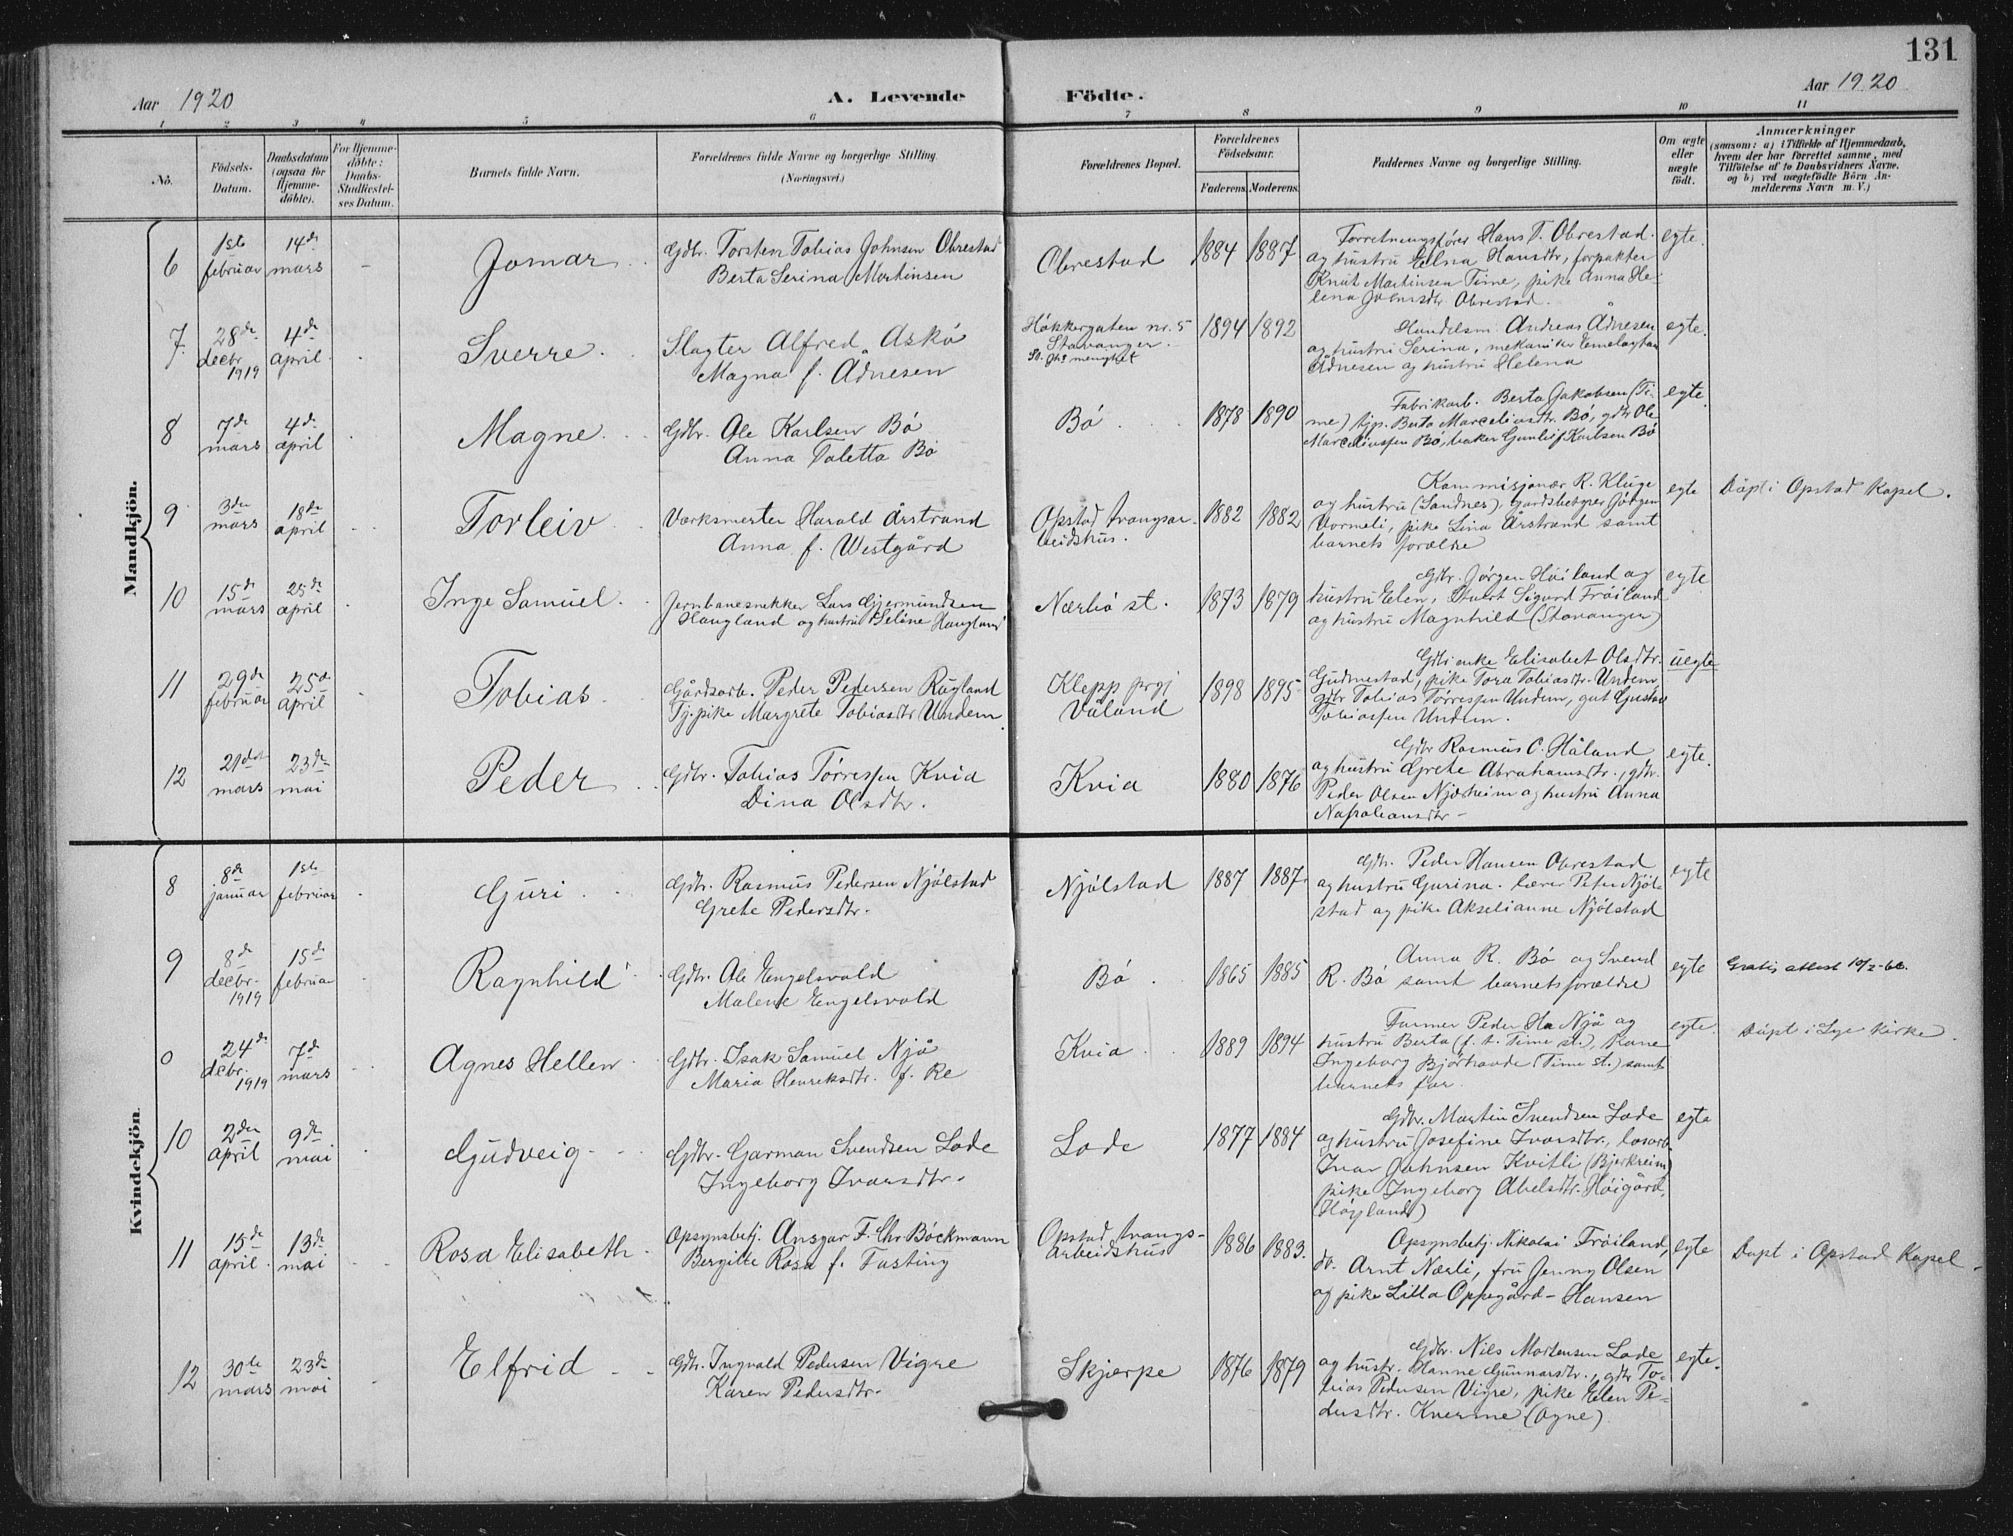 131
Aar 1920
A. Levende Födte.
Aar 1920
1 2 3 4 5 6 7 8 9 10 11
No.
Födsels-
Datum.
Daabsdatum
(ogsaa for
Hjemme-
döbte).
For Hjemme-
döbte:
Daabs-
Stadfæstel-
ses Datum.
Barnets fulde Navn.
Forældrenes fulde Navne og borgerlige Stilling.
(Næringsvei.)
Forældrenes Bopæl.
Forældrenes
Födselsaar.
Faderens. Moderens.
Faddernes Navne og borgerlige Stilling.
Om ægte
eller
uægte
födt.
Anmærkninger
(saasom: a) i Tilfælde af Hjemmedaab,
hvem der har forrettet samme, med
Tilföielse af to Daabsvidners Navne,
og b) ved uægtefödte Börn An-
melderens Navn m. V.)
Mandkjön.
6
1ste
februar
14de
mars
Jomar
Gdbr. Torsten Tobias Johnsen Obrestad
Berta Serina Martinsen
Obrestad
1884 1887
Forretningsfører Hans T. Obrestad
og hustru Elna Hansdtr, forpakter
Knut Martinsen Time, pike Anna He-
lena Johnsdtr Obrestad.
egte.
7
28de
decbr.
1919
4de
april
Sverre
Slagter Alfred Askø
Magna f. Ådnesen
Høkkergaten nr. 5
Stavanger.
1894 1892
Handelsm. Andreas Ådnesen
og hustru Serina, mekaniker
Ådnesen og hustru Helena
egte.
8
7de
mars
4de
april
Magne
Gdbr. Ole Karlsen Bø
Anna Taletta Bø
Bø
1878 1890
Fabrikarb. Berta Jakobsen (Ti-
me) kjp. Berta Marceliusdtr Bø, gdbr Ole
Marceliussen Bø, baker Gunleif Karlsen Bø
egte.
9
3die
mars
18de
april
Torleiv
Værksmester Harald Årstrand
Anna f. Westgård
Opstad tvangsar-
beidshus.
1882 1882
Kommisjonær R. Kluge
og hustru (Sandnes), gardsbestyrer Jørgen
Vormeli, pike Lina Årstrand samt
barnets forældre
egte
Døpt i Opstad Kapel.
10
15de
mars
25de
april
Inge Samuel
Jernbanesnekker Lars Gjermundsen
Haugland og hustru Seline Haugland
Nærbø st.
1873 1879
Gdbr. Jørgen Høiland og
hustru Elen, Stuert Sigurd Frøiland
og hustru Magnhild (Stavanger)
egte
11
29de
februar
25de
april
Tobias
Gårdsarb. Peder Pedersen Rugland
Tj. pike Margrete Tobiasdtr Undem
Klepp prgj
Våland
1898 1895
Gdbr enke Elisabet Olsdtr.
Gudmestad, pike Tora Tobiasdtr. Undem,
gdbr Tobias Tørressen Undem, gut Gustav
Tobiassen Undem.
uegte
12
21de
mars
23de
mai
Peder
Gdbr. Tobias Tørressen Kvia
Dina Olsdtr.
Kvia
1880 1876
Gdbr Rasmus C. Håland
og hustru Grete Abrahamsdtr., gdbr.
Peder Olsen Njærheim og hustru Anna
Napoleonsdtr.
egte.
Kvindekjön.
8
8de
januar
1ste
februar
Guri
Gdbr. Rasmus Pedersen Njølstad
Grete Pedersdtr.
Njølstad
1887 1887
Gdbr. Peder Hansen Obrestad
og hustru Gurina. lærer Peter Njøl-
stad og pike Akselianne Njølstad
egte
9
8de
decbr.
1919
15de
februar
Ragnhild
Gdbr. Ole Engelsvold
Malene Engelsvold
Bø
1865 1885
Anna R. Bø og Svend
R. Bø samt barnets forældre
egte
Gratis attest 19/2-66.
0
24de
decbr.
1919
7de
mars
Agnes Hellen
Gdbr. Isak Samuel Njå
Maria Henriksdtr. f. Re
Kvia
1889 1894
Farmer Peder Ha Njå og
hustru Berta (f. t. Time st.), Kone
Ingeborg Bjørhovde (Time st.) samt
barnets far.
egte.
Døpt i Lye Kirke.
10
2den
april
9de
mai
Gudveig
Gdbr. Garman Svendsen Lode
Ingeborg Ivarsdtr.
Lode
1877 1884
Gdbr. Martin Svendsen Lode
og hustru Josefine Ivarsdtr., løsarb.
Ivar Johnsen Kvitli (Bjerkreim)
pike Ingeborg Abelsdtr. Høigård
(Høyland)
egte
11
15de
april
13de
mai
Rosa Elisabeth
Opsynsbetj. Ansgar F. Chr Bøckmann
Bergitte Rosa f. Fasting
Opstad tvangs-
arbeidshus
1886 1883.
Opsynsbetj. Nikolai Frøiland,
do. Arnt Nærli, fru Jenny Olsen
og pike Lilla Oppegård-Hansen
egte
Døpt i Opstad Kapel.
12
30te
mars
23de
mai
Elfrid
Gdbr. Ingvald Pedersen Vigre
Karen Pedersdtr.
Skjærpe
1876 1879
Gdbr. Nils Mortensen Lode
og hustr. Hanne Gunnarsdtr., gdbr To-
bias Pedersen Vigre, pike Elen Pe-
dersdtr. Kverme (Ogne)
egte.